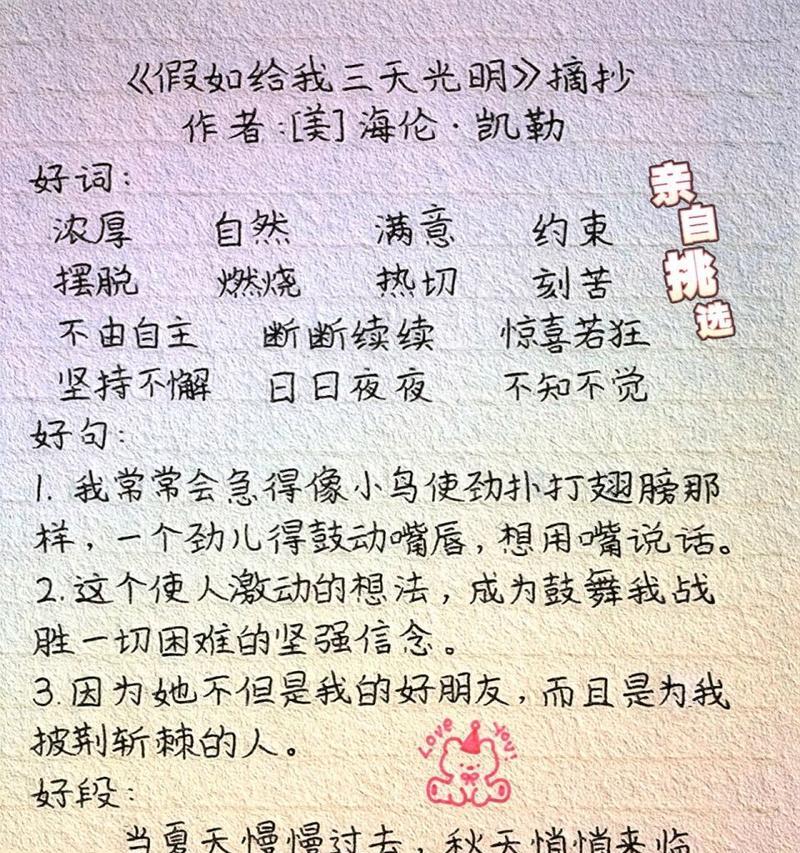 《假如给我三天光明》摘抄
作者:[美]海伦·凯勒
好词:
浓厚 自然 满意 约束
摆脱 燃烧 热切 刻苦
不由自主 断断续续 惊喜若狂
坚持不懈 日日夜夜 不知不觉
亲自挑选
好句:
1. 我常常会急得像小鸟使劲扑打翅膀那
样，一个劲儿得鼓动嘴唇，想用嘴说话。
2.这个使人激动的想法，成为鼓舞我战
胜一切困难的坚强信念。
3.因为她不但是我的好朋友，而且是为我
披荆斩棘的人。
Love You!
好段:
当夏天慢慢过去，秋天悄悄来临